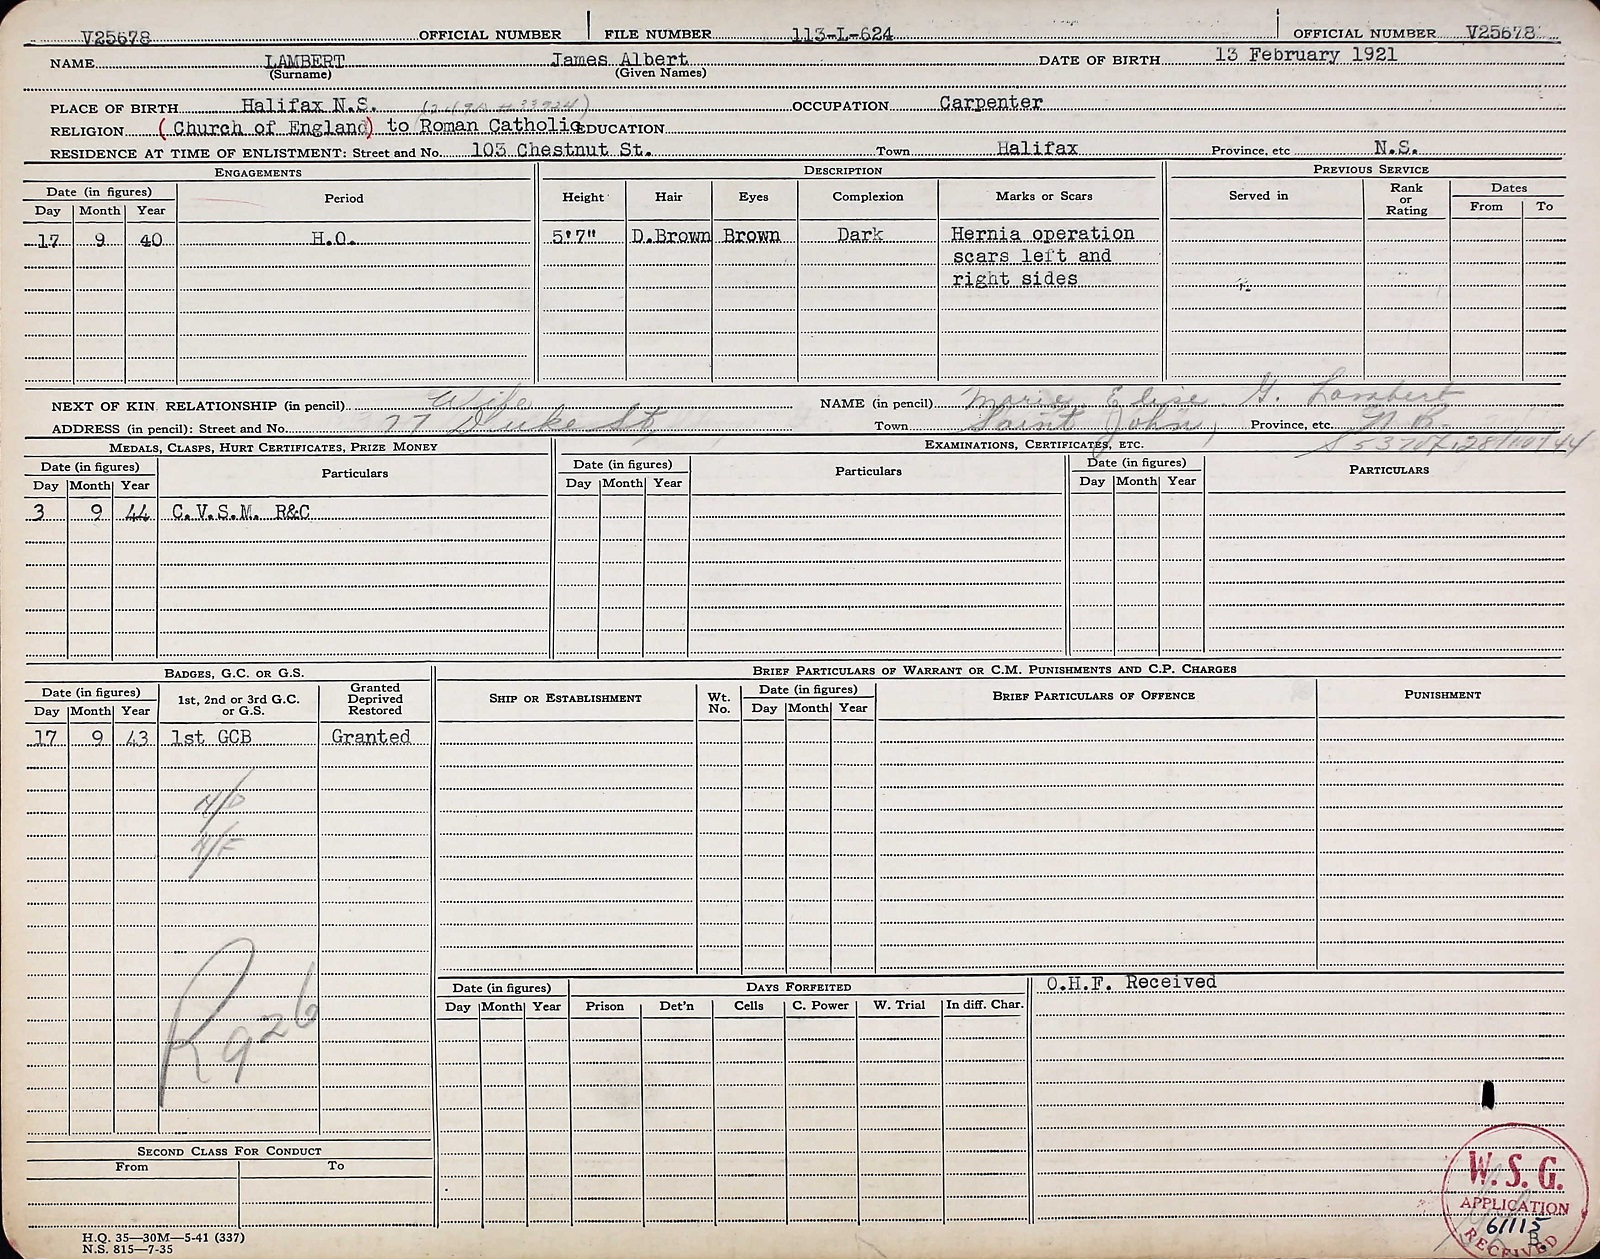 V25678 OFFICIAL NUMBER FILE NUMBER 113-L-624 OFFICIAL NUMBER V25678
NAME LAMBERT James Albert DATE OF BIRTH 13 February 1921
(Surname) (Given Names)
PLACE OF BIRTH Halifax N.S. OCCUPATION Carpenter
RELIGION (Church of England) to Roman Catholic EDUCATION
RESIDENCE AT TIME OF ENLISTMENT: Street and No. 103 Chestnut St. Town Halifax Province, etc N.S.
ENGAGEMENTS DESCRIPTION PREVIOUS SERVICE
Date (in figures) Period Height Hair Eyes Complexion Marks or Scars Served in Rank or Rating Dates
Day Month Year From To
17 9 40 H.O. 5'7" D.Brown Brown Dark Hernia operation
scars left and
right sides
NEXT OF KIN. RELATIONSHIP (in pencil) Wife NAME (in pencil) Marie Elise G. Lambert
ADDRESS (in pencil): Street and No. 77 Duke St, Town Saint John, Province, etc. N.B.
MEDALS, CLASPS, HURT CERTIFICATES, PRIZE MONEY EXAMINATIONS, CERTIFICATES, ETC.
Date (in figures) Particulars Date (in figures) Particulars Date (in figures) PARTICULARS
Day Month Year Day Month Year Day Month Year
3 9 44 C.V.S.M. R&C
BADGES, G.C. OR G.S. BRIEF PARTICULARS OF WARRANT OR C.M. PUNISHMENTS AND C.P. CHARGES
Date (in figures) 1st, 2nd or 3rd G.C. or G.S. Granted Deprived Restored SHIP OR ESTABLISHMENT Wt. No. Date (in figures) BRIEF PARTICULARS OF OFFENCE PUNISHMENT
Day Month Year Day Month Year
17 9 43 1st GCB Granted
N/F
R926
Date (in figures) DAYS FORFEITED O.H.F. Received
Day Month Year Prison Det'n Cells C. Power W. Trial In diff. Char.
SECOND CLASS FOR CONDUCT
From To
W.S.G.
APPLICATION
61115
B
RECEIVED
H.Q. 35—30M—5-41 (337)
N.S. 815—7-35